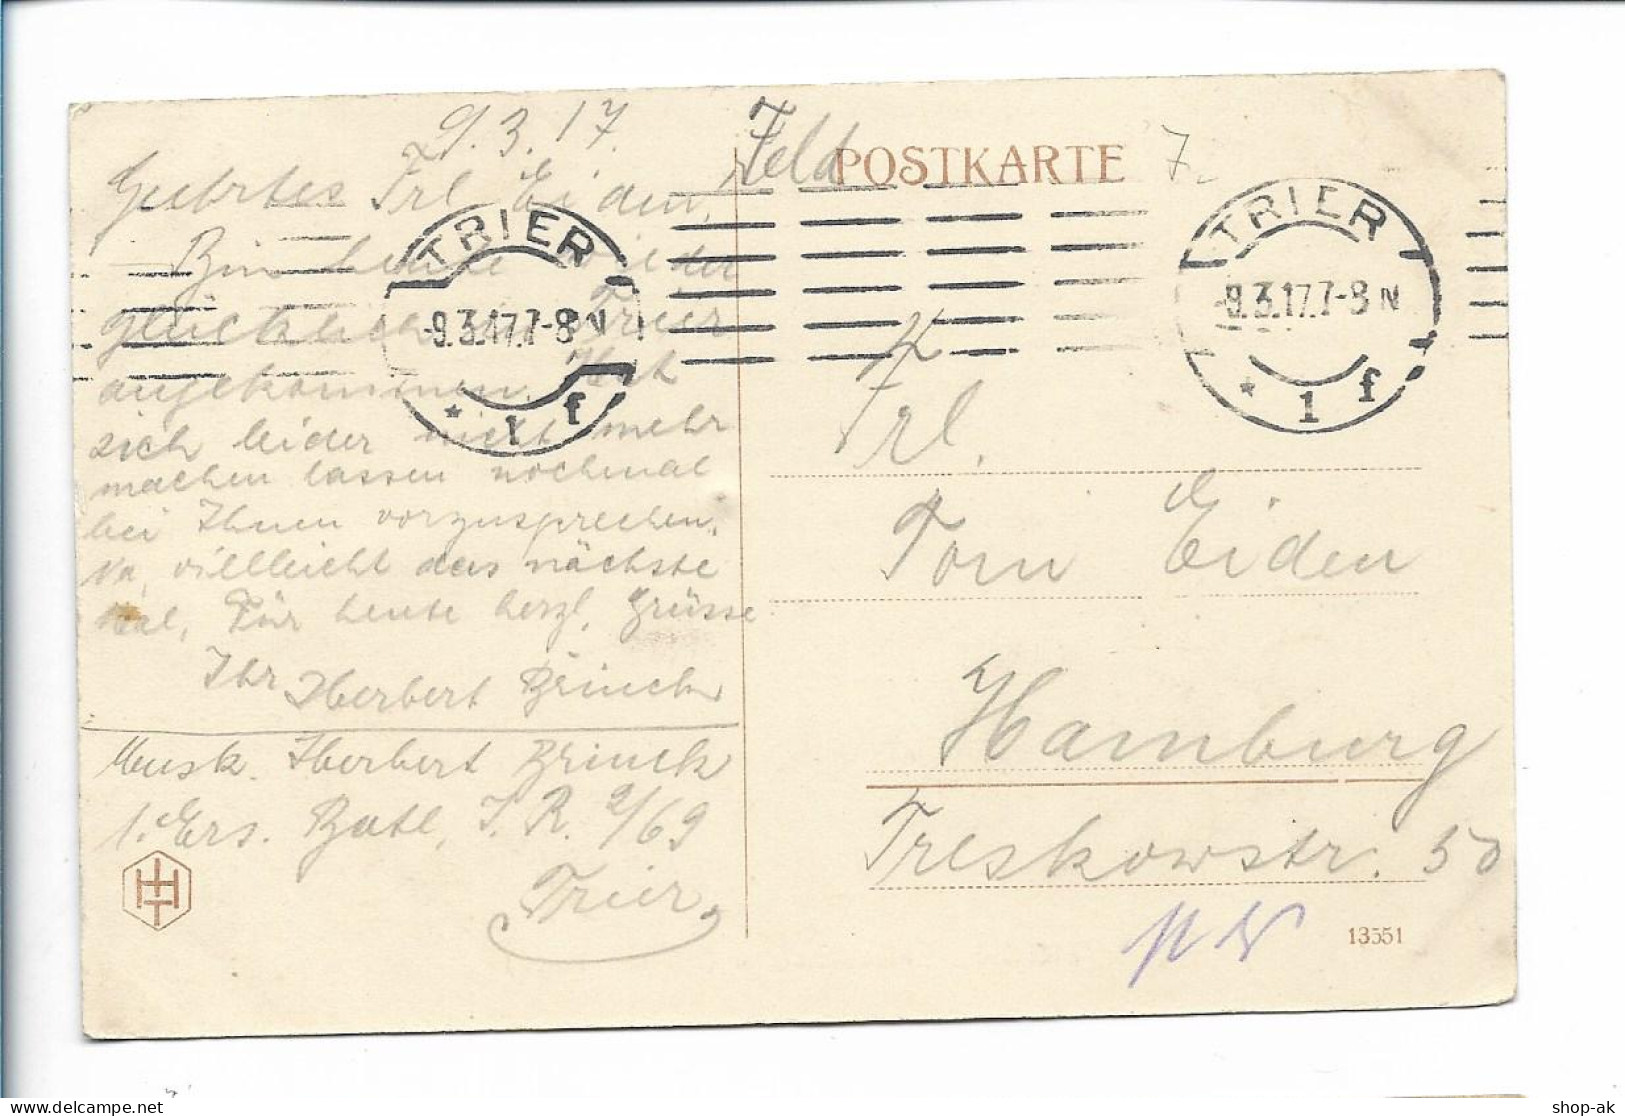 9.3.17.
Geehrtes Frl Eiden,
Bin heute wieder
glücklich in Trier
angekommen. Hat
sich leider nicht mehr
machen lassen nochmal
bei Ihnen vorzusprechen.
Na, vielleicht das nächste
Mal, Für heute herzl. Grüsse
Ihr Herbert Brinck
Musk. Herbert Brinck
1. Ers. Batl, I. R. 2/69
Trier
Feld POSTKARTE 7.
TRIER
-9.3.17.7-8 N
* 1 f
TRIER
-9.3.17.7-8 N
* 1 f
Frl.
Toni Eiden
Hamburg
Treskowstr. 50
13551
shop-ak